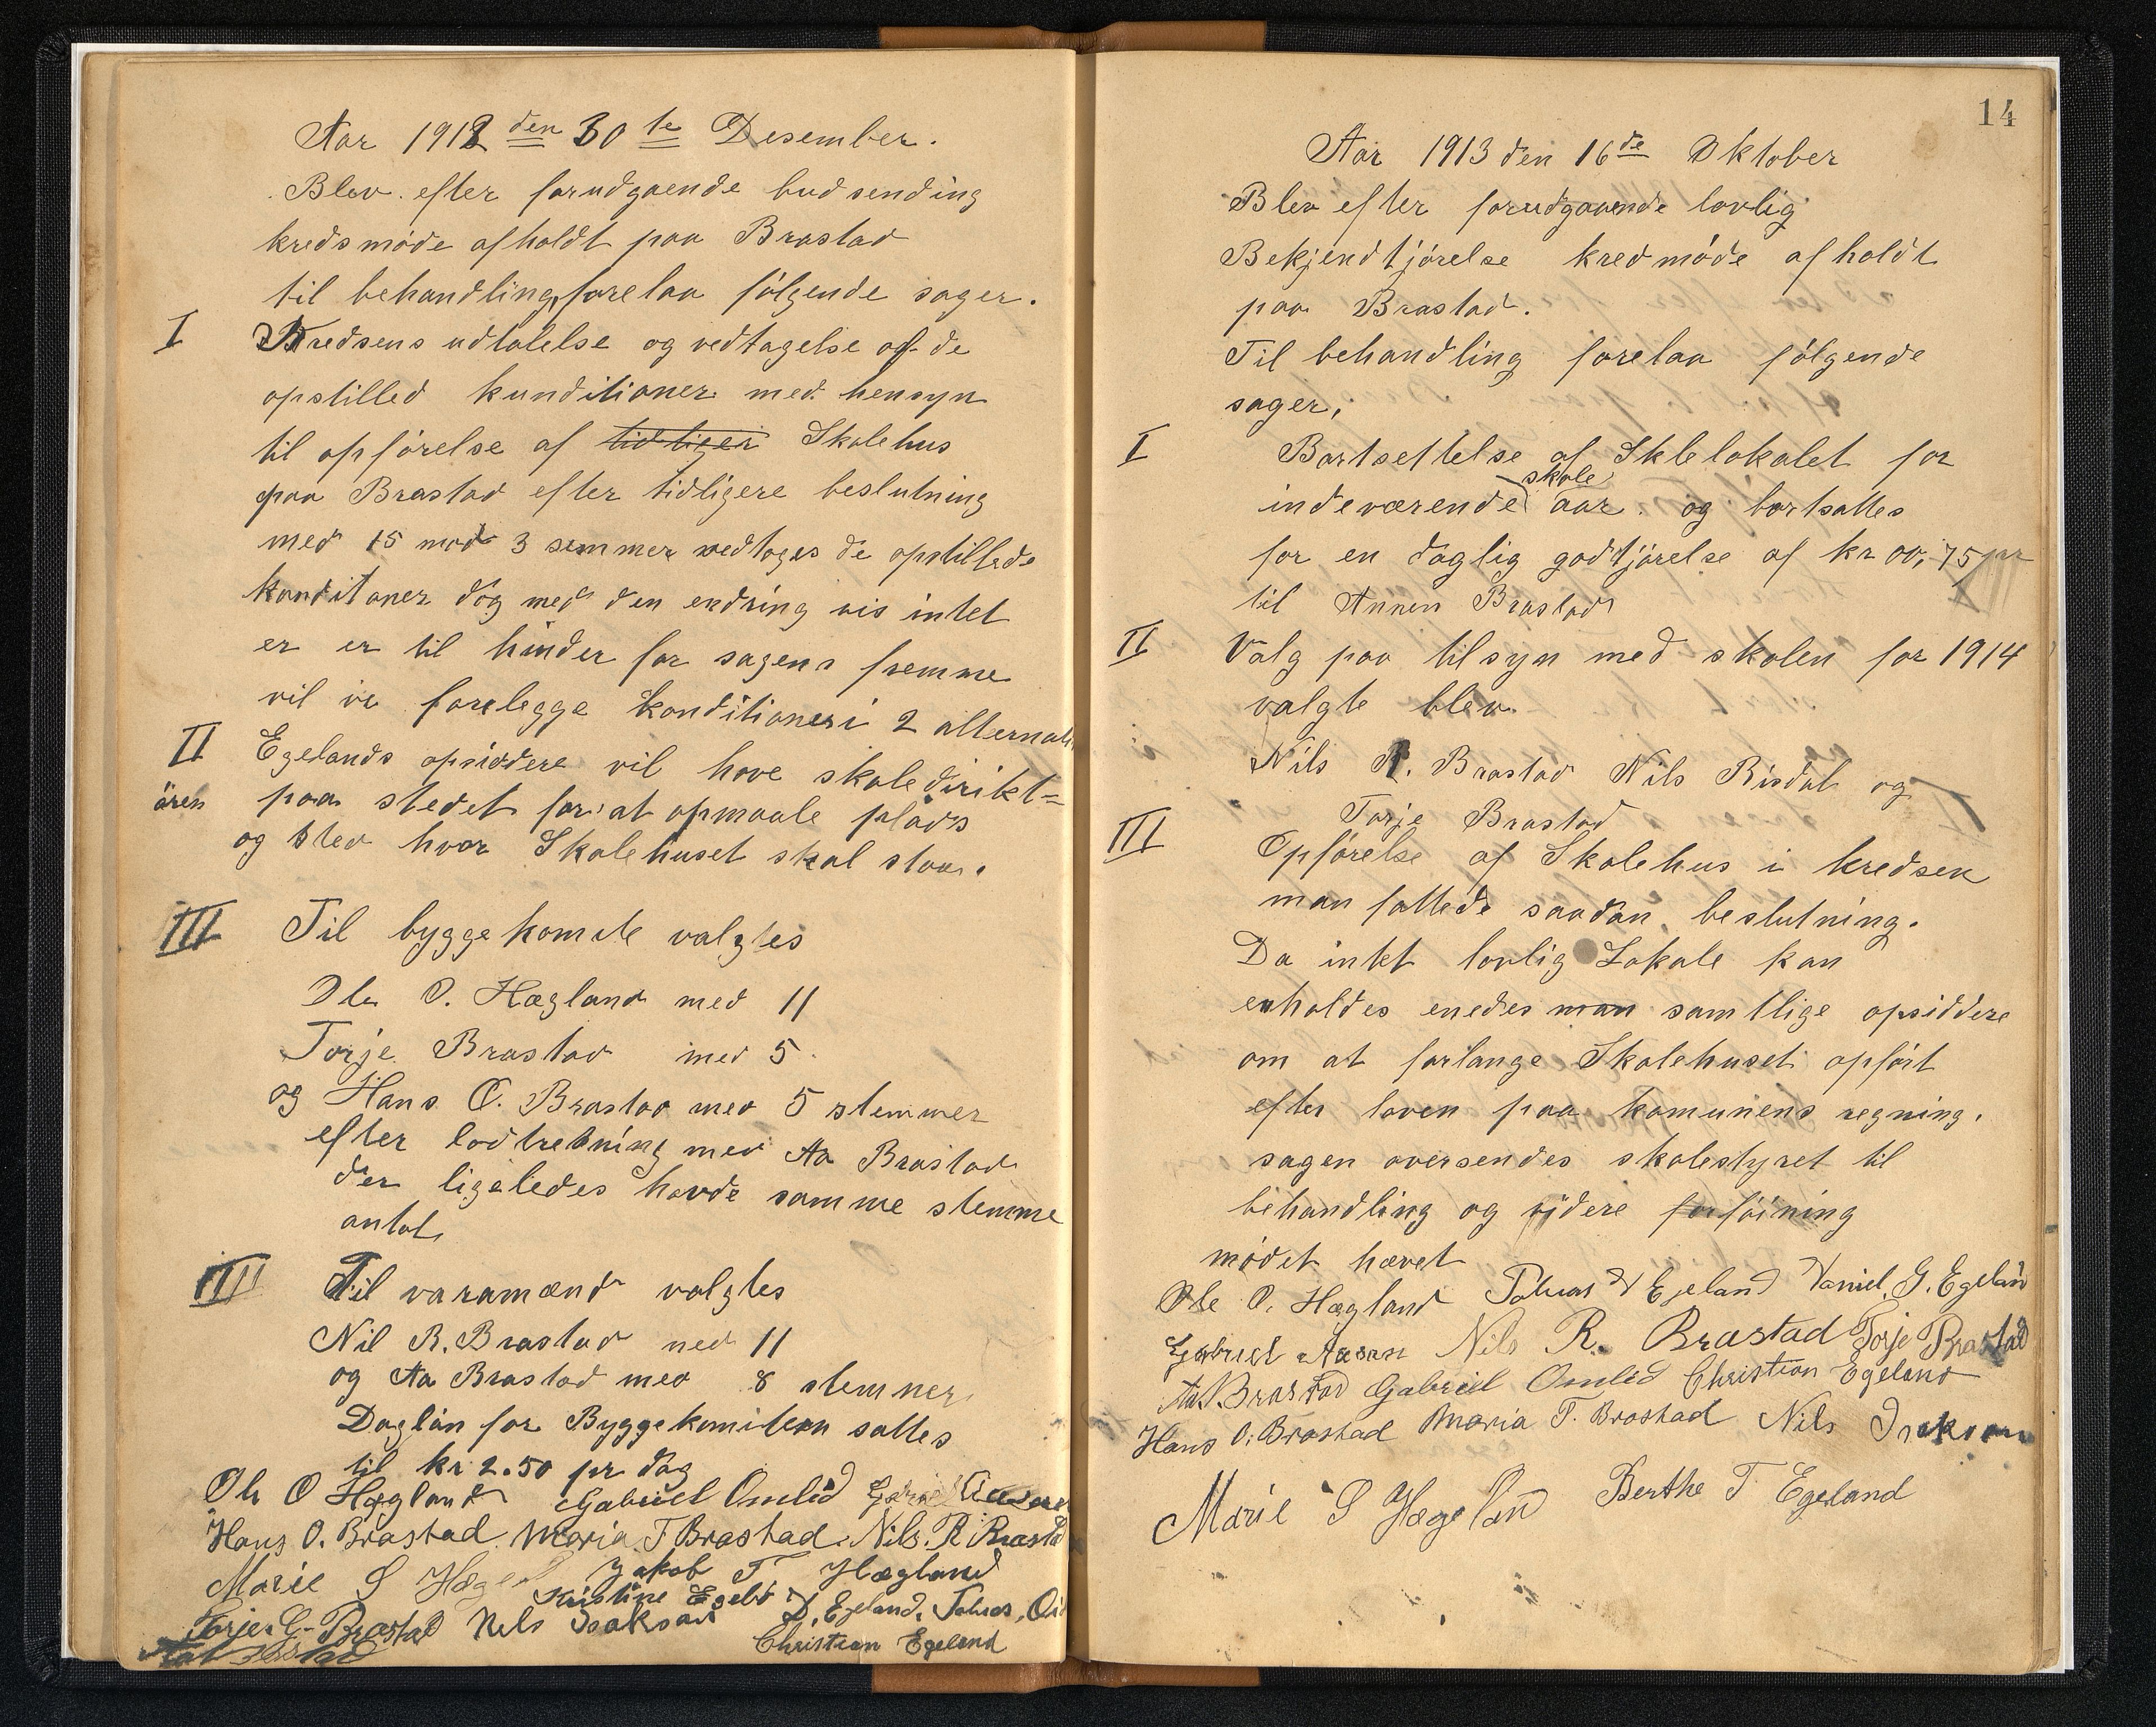 Aar 1912 den 30te Desember.
Blev efter forudgaaende budsending
kredsmöde afholdt paa Brastad
til behandling forelaa fölgende sager.
I Kredsens udtalelse og vedtagelse af de
opstilled kunditioner med hensyn
til opförelse af tidliger Skolehus
paa Brastad efter tidligere beslutning
med 15 mod 3 semmer vedtoges de opstillede
konditoner dog med den endring vis intet
er er til hinder for sagens fremme
vil vi forelegge konditioner i 2 alternati
II Egelands opsiddere vil have skoledirikt=
ören paa stedet for at opmaale plads
og sted hvor Skolehuset skal staa.
III Til byggekomite valgtes
Ole O. Hægland med 11
Torje Brastad med 5
og Hans O. Brastad med 5 stemmer
efter lodtrekning med Aa Brastad
der ligeledes havde samme stemme
antal
IIII Til varamænd valgtes
Nil R. Brastad med 11
og Aa Brastad med 8 stemmer
Daglön for Byggekomiteen sattes
til kr 2.50 pr dag
Ole O Hægland Gabriel Omlid Gabriel
Hans O. Brastad Maria T Brastad. Nils. R Brastad
Marie S Hægel Jakob T Hægland
Kristine Egeld D. Egeland. Tobias.
Torje G. Brastad Nels Isaksen
Christian Egeland
14
Aar 1913 den 16de Oktober
Blev efter forudgaaende lovlig
Bekjendtjörelse kredmöde afholdt
paa Brastad.
Til behandling forelaa fölgende
sager,
I Bortsettelse af Sklelokalet for
skole
indeværende aar. og bortsattes
for en daglig godtjörelse af kr 00,75 pr
til Annen Brastad
II Valg paa tilsyn med skolen for 1914
valgte blev
Nils R. Brastad Nils Risdal og
Torje Brastad
III Opförelse af Skolehus i kredsen
man fattede saadan beslutning.
Da intet lovlig Lokale kan
erholdes enedes man samtlige opsiddere
om at forlange Skolehuset opfört
efter loven paa komunens regning.
sagen oversendes skolestyret til
behandling og videre forföining
mödet hævet
Ole O. Hægland Tobias Egeland Daniel. G. Egeland
Gabriel Aasen Nils R. Brastad Torje Brastad
Aa. Brastad Gabriel Omlid Christian Egeland
Hans O. Brastad Maria T. Brastad Nils Isaksen
Marie S Hægeland Berthe T Egeland